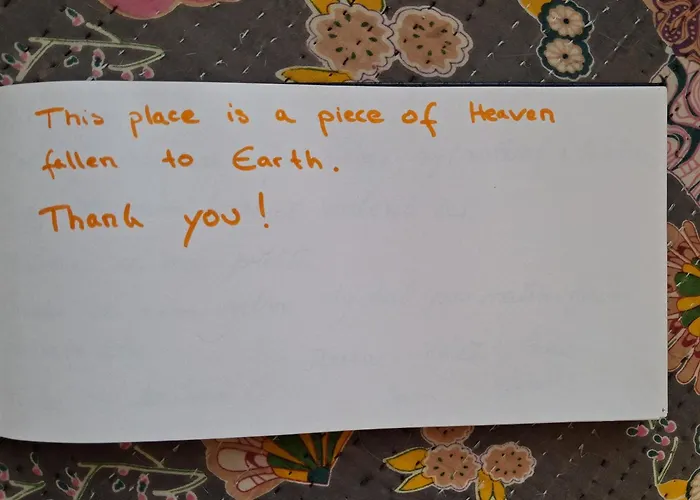 This place is a piece of Heaven
fallen to Earth.
Thank you!